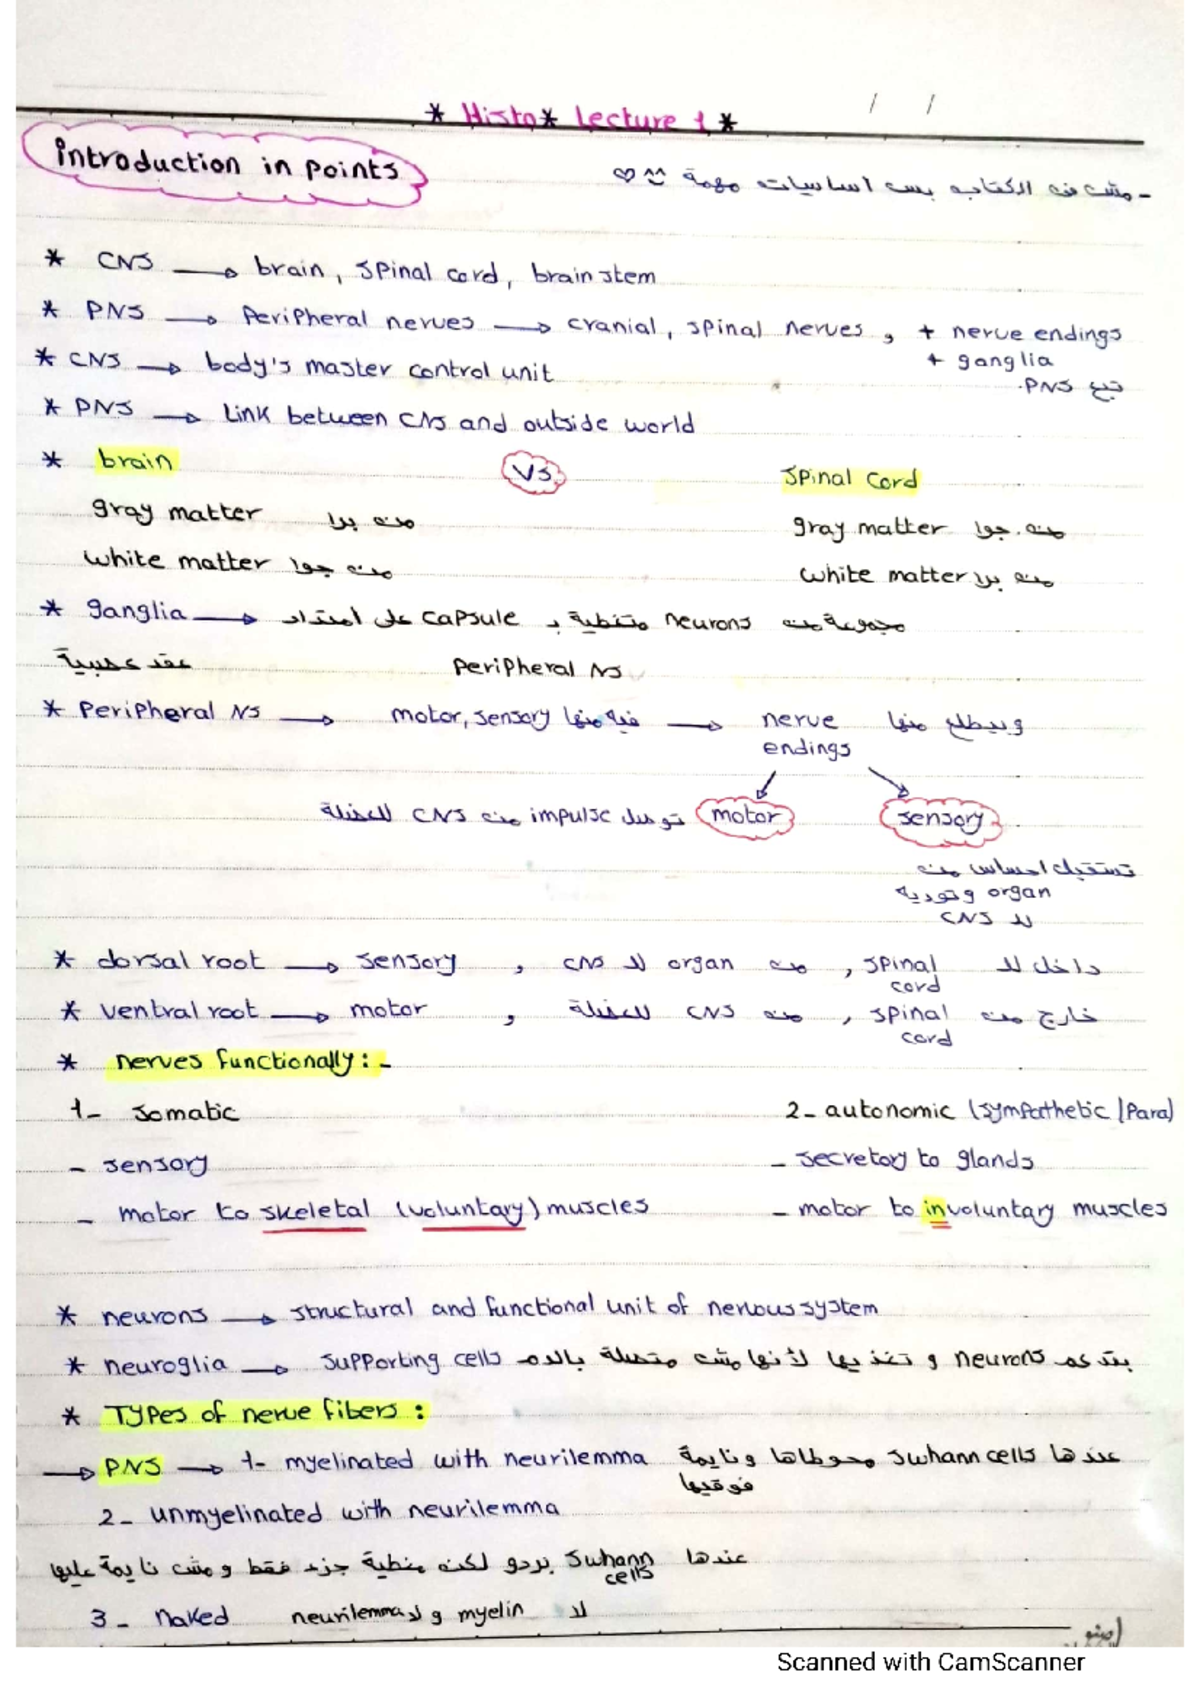 * Histo * Lecture 1 *
/ /
introduction in points
- مش في الكتاب بس اساسيات مهمة ^^ ♡
* CNS → brain, spinal cord, brain stem
* PNS → Peripheral nerves → cranial, spinal nerves, + nerve endings
+ ganglia
تبع PNS.
* CNS → body's master control unit
* PNS → Link between CNS and outside world
* brain Vs. Spinal Cord
gray matter من برا gray matter من جوا
white matter من جوا white matter من برا
* ganglia → مجموعة من neurons متغطية بـ capsule على امتداد
Peripheral NS
عقد عصبية
* Peripheral NS → motor, sensory فيه منها → nerve endings وبيطلع منها
motor توصل impulse من CNS للعضلة
sensory
تستقبل احساس من
organ وتوديه
لل CNS
* dorsal root → sensory , من organ لل CNS , داخل لل spinal cord
* ventral root → motor , من CNS للعضلة , خارج من spinal cord
* nerves functionally:-
1- Somatic 2- autonomic (sympathetic / Para)
- sensory - secretory to glands
- motor to skeletal (voluntary) muscles - motor to involuntary muscles
* neurons → structural and functional unit of nervous system
* neuroglia → supporting cells بتدعم neurons و تغذيها لأنها مش متصلة بالدم
* Types of nerve fibers :
→ PNS → 1- myelinated with neurilemma عندها swhann cells محوطاها ونايمة
فوقيها
2- unmyelinated with neurilemma
عندها swhann cells بردو لكن مغطية جزء فقط و مش نايمة عليها
3- Naked لا myelin ولا neurilemma
Scanned with CamScanner